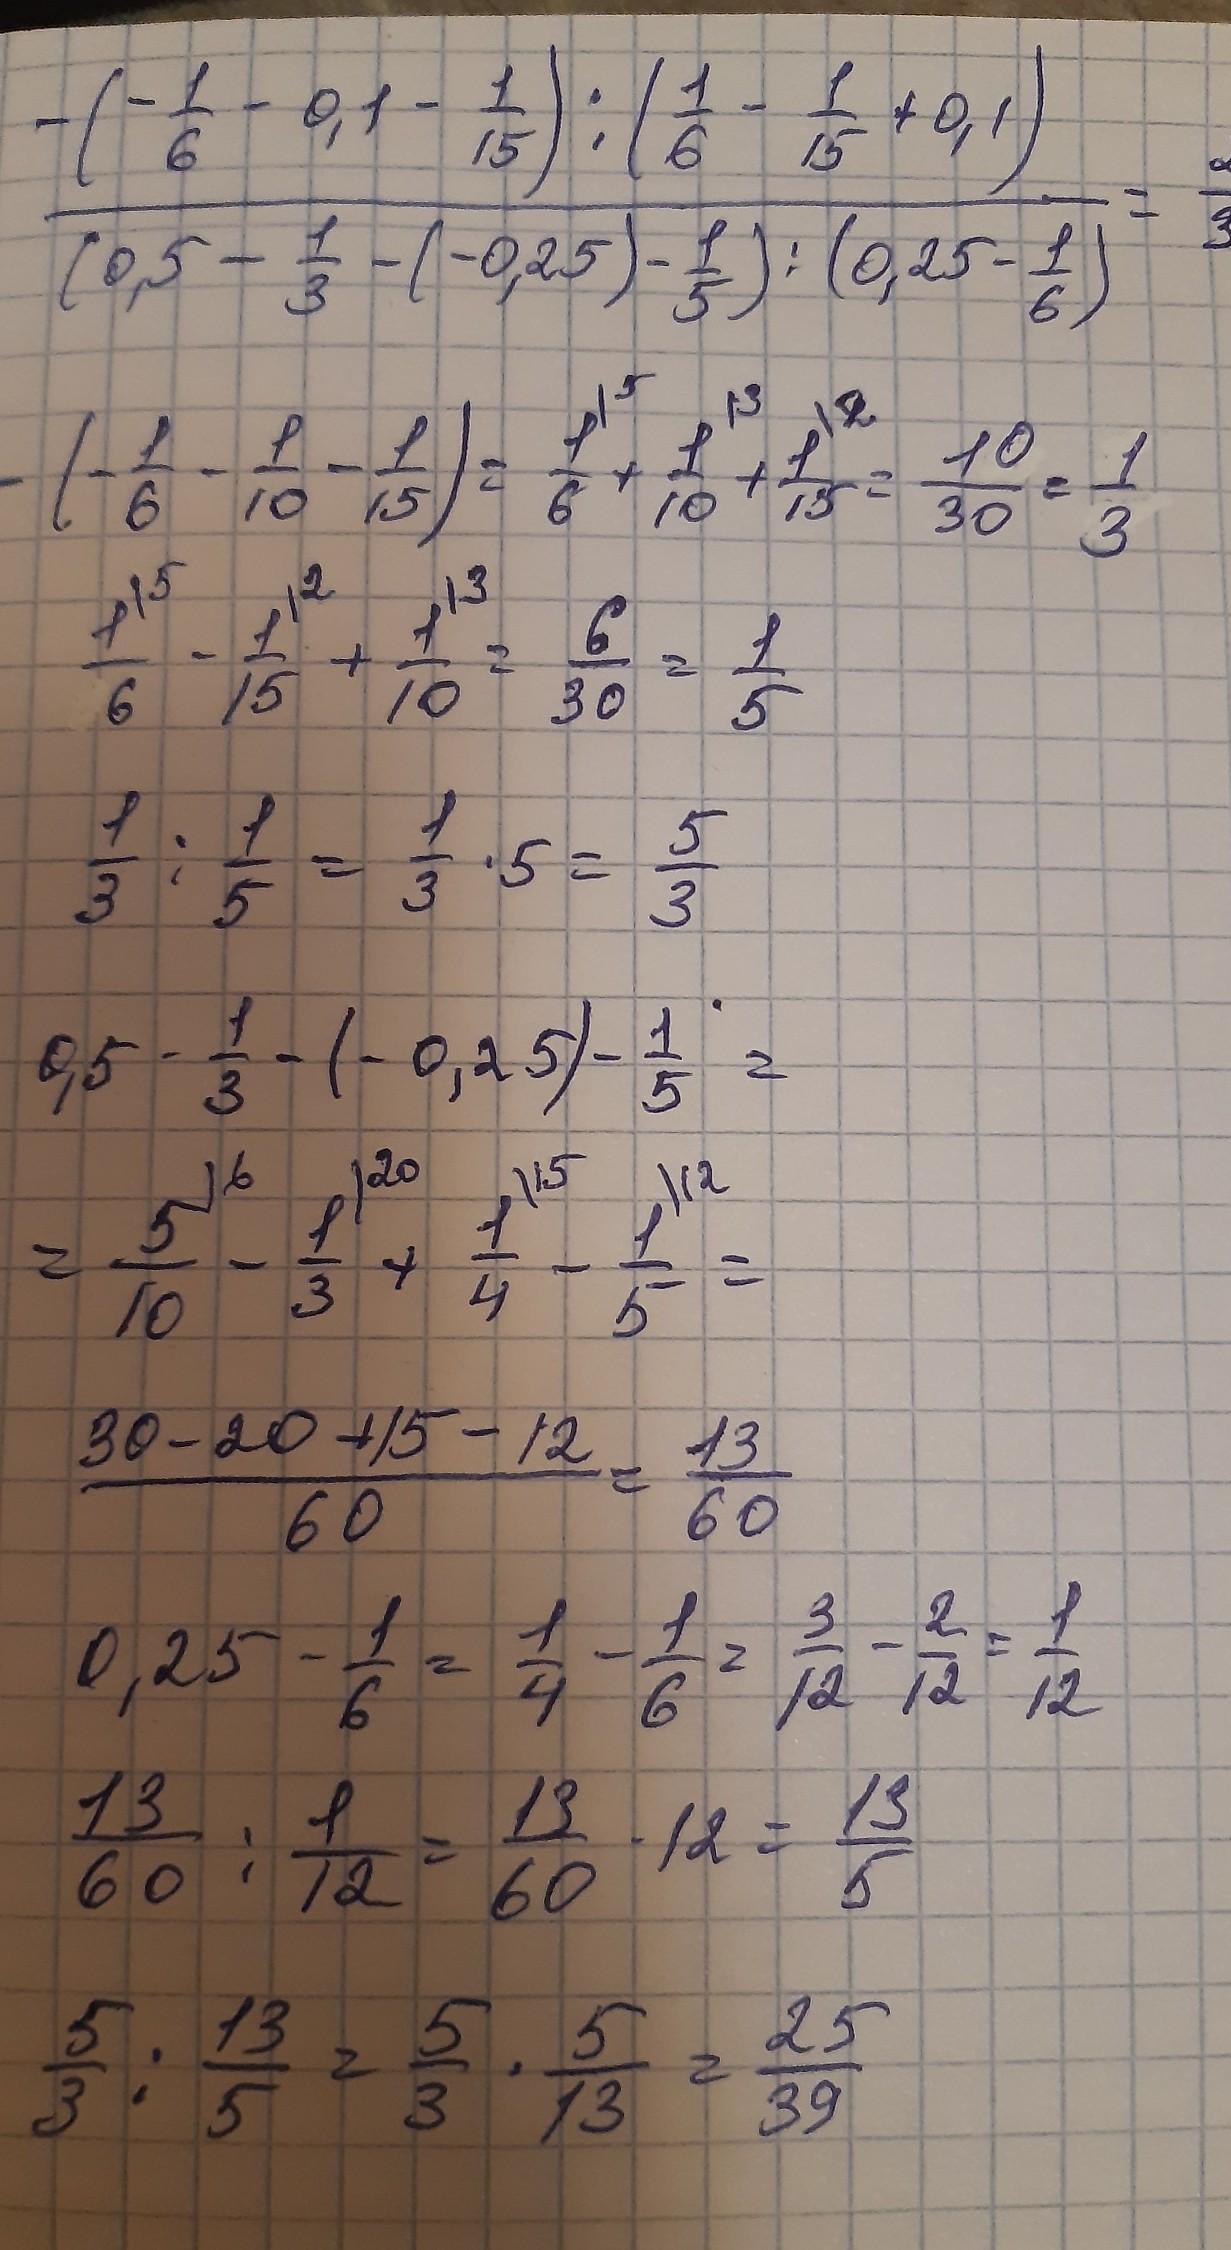 -(-1/6 - 0,1 - 1/15) : (1/6 - 1/15 + 0,1)
(0,5 - 1/3 - (-0,25) - 1/5) : (0,25 - 1/6) =
-(-1/6 - 1/10 - 1/15) = 1\5/6 + 1\3/10 + 1\2/15 = 10/30 = 1/3
1\5/6 - 1\2/15 + 1\3/10 = 6/30 = 1/5
1/3 : 1/5 = 1/3 · 5 = 5/3
0,5 - 1/3 - (-0,25) - 1/5 =
= 5\6/10 - 1\20/3 + 1\15/4 - 1\12/5 =
30 - 20 + 15 - 12/60 = 13/60
0,25 - 1/6 = 1/4 - 1/6 = 3/12 - 2/12 = 1/12
13/60 : 1/12 = 13/60 · 12 = 13/5
5/3 : 13/5 = 5/3 · 5/13 = 25/39